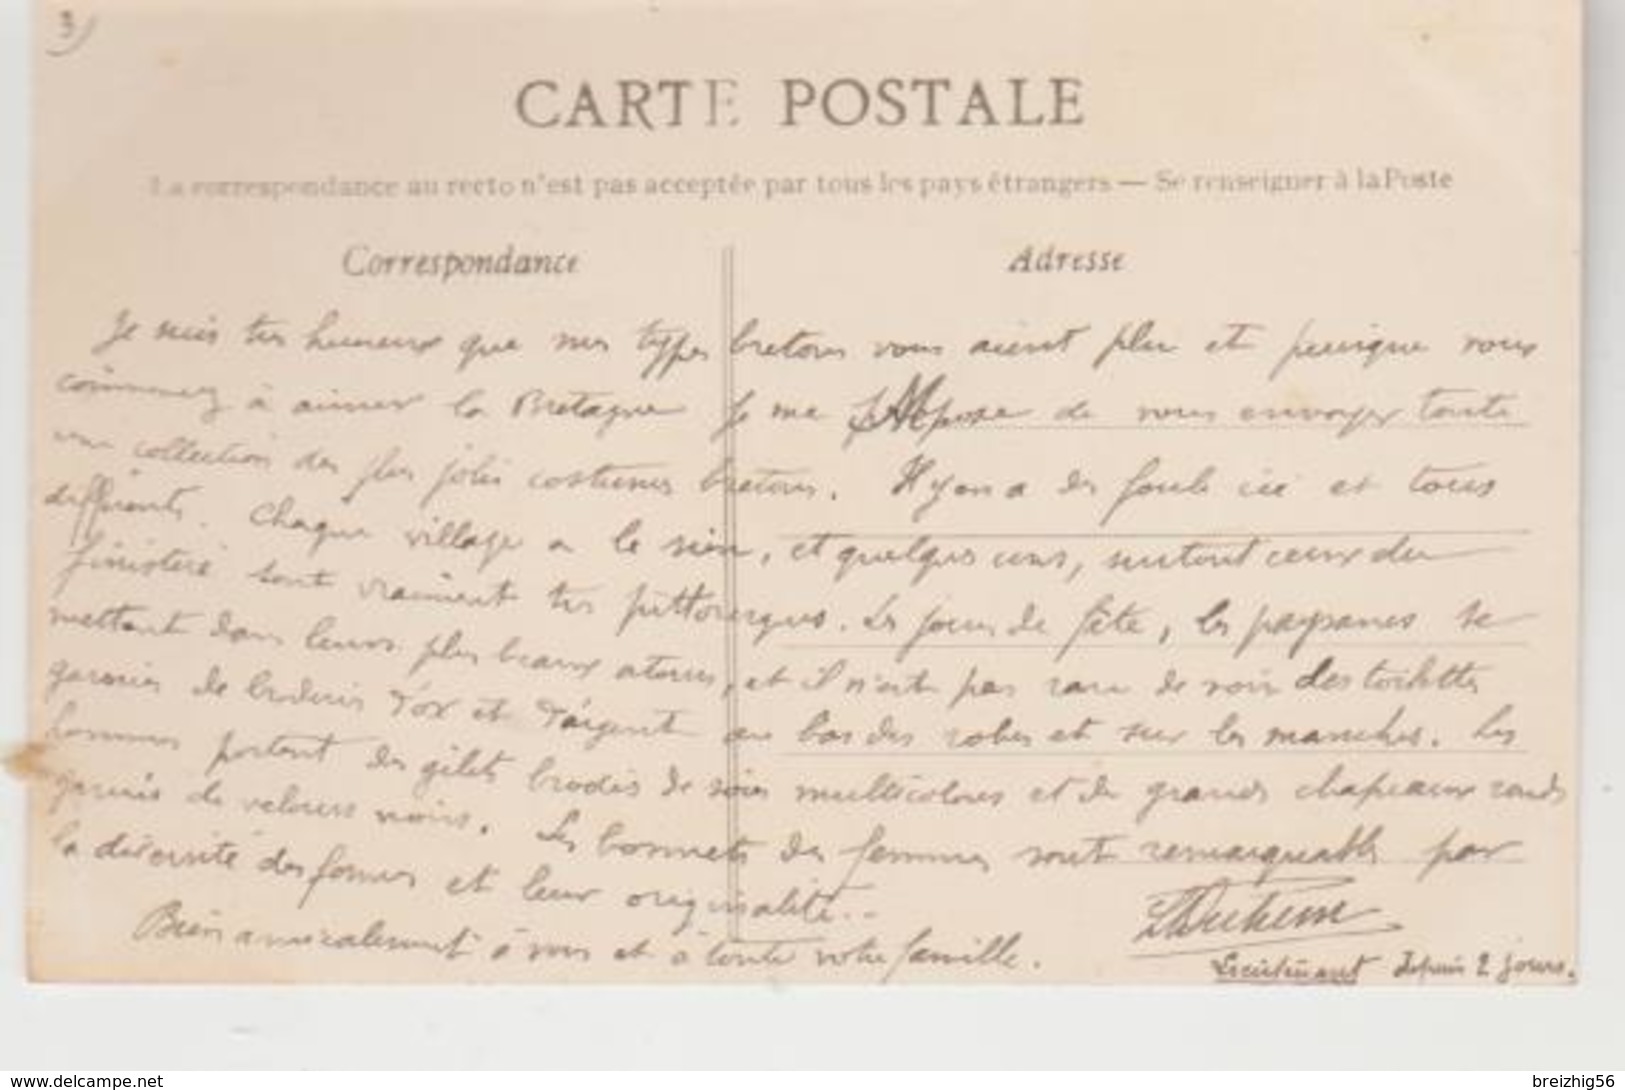 3)
CARTE POSTALE
La correspondance au recto n'est pas acceptée par tous les pays étrangers — Se renseigner à la Poste
Correspondance
Adresse
Je suis très heureux que mes types bretons vous aient plu et puisque vous
commencez à aimer la Bretagne je me propose de vous envoyer toute
une collection des plus jolis costumes bretons. Il y en a des foules ici et tous
différents. Chaque village a le sien, et quelques uns, surtout ceux du
finistère sont vraiment très pittoresques. Les jours de fête, les paysannes se
mettent dans leurs plus beaux atours, et il n'est pas rare de voir des toilettes
garnies de broderies d'or et d'argent au bas des robes et sur les manches. Les
hommes portent des gilets brodés de soies multicolores et de grands chapeaux ronds
garnis de velours noirs. Les bonnets des femmes sont remarquables par
la diversité des formes et leur originalité..
Bien amicalement à vous et à toute votre famille.
Lieutenant depuis 2 jours.
www.delcampe.net
breizhig56